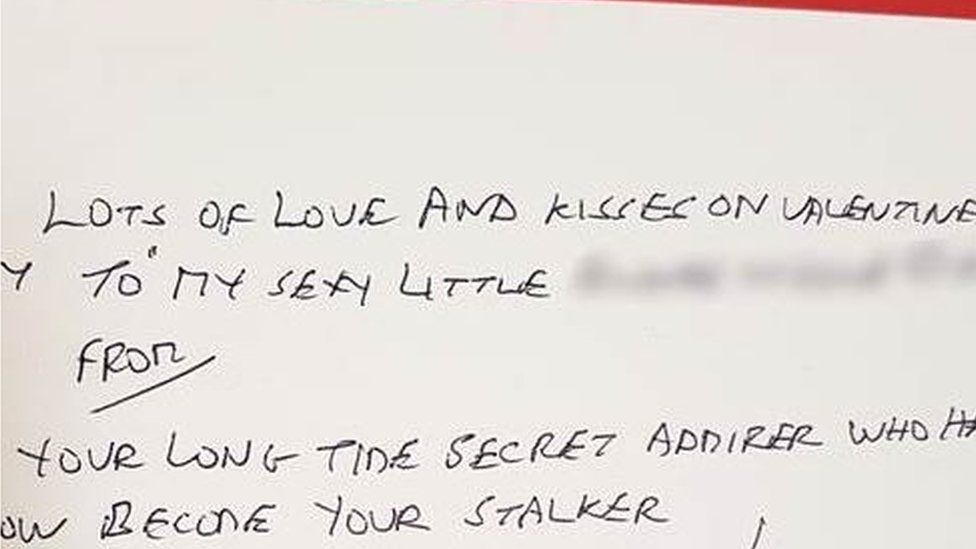 LOTS OF LOVE AND KISSES ON VALENTINE
Y TO" MY SEXY LITTLE
FROM
YOUR LONG TIME SECRET ADDIRER WHO HA
OW BECOME YOUR STALKER